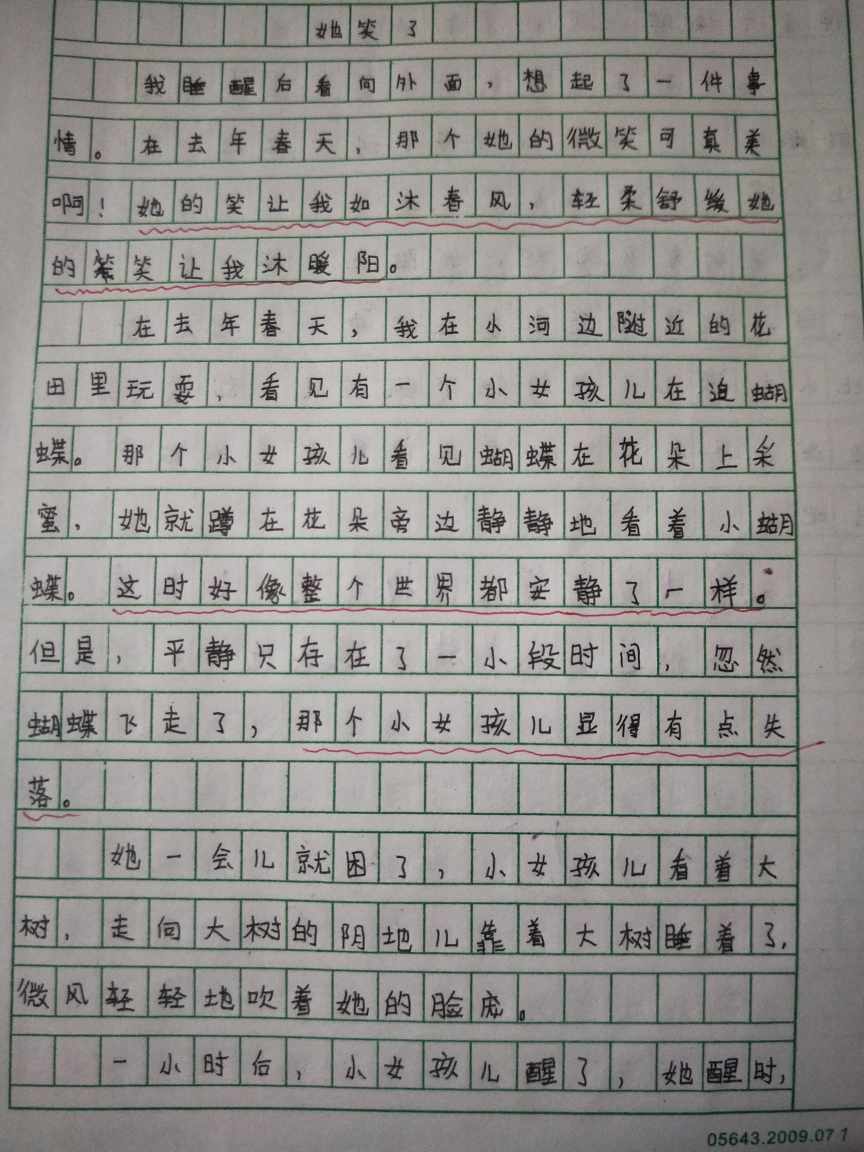 她笑了
我睡醒后看向外面，想起了一件事
情。在去年春天，那个她的微笑可真美
啊！她的笑让我如沐春风，轻柔舒缓她
的笑让我沐暖阳。
在去年春天，我在小河边附近的花
田里玩耍，看见有一个小女孩儿在追蝴
蝶。那个小女孩儿看见蝴蝶在花朵上采
蜜，她就蹲在花朵旁边静静地看着小蝴
蝶。这时好像整个世界都安静了一样。
但是，平静只存在了一小段时间，忽然
蝴蝶飞走了，那个小女孩儿显得有点失
落。
她一会儿就困了，小女孩儿看着大
树，走向大树的阴地儿靠着大树睡着了，
微风轻轻地吹着她的脸庞。
一小时后，小女孩儿醒了，她醒时，
05643.2009.07 1